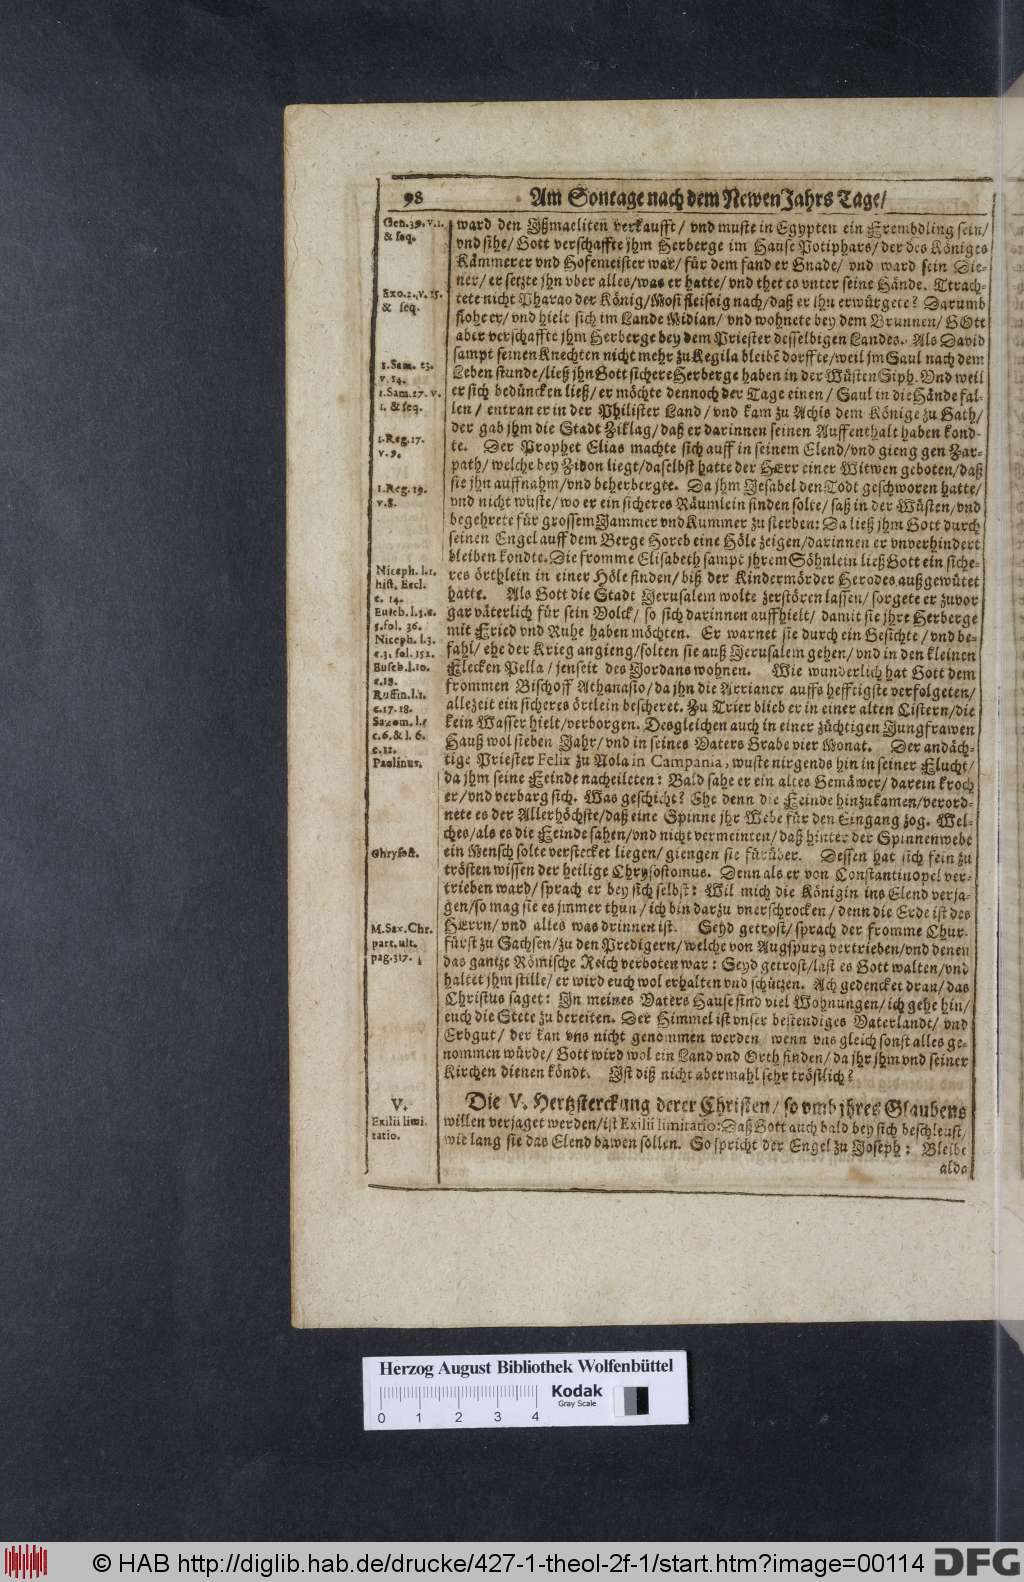 98 Am Sontage nach dem Newen Jahrs Tage/
Gen. 39. v. 1.
& seq.
Exo. 2. v. 15.
& seq.
1. Sam. 23.
v. 14.
1. Sam. 27. v.
1. & seq.
1. Reg. 17.
v. 9.
1. Reg. 19.
v. 8.
Niceph. l. 1.
hist. Eccl.
c. 14.
Euseb. l. 3. c.
5. fol. 36.
Niceph. l. 3.
c. 3. fol. 152.
Euseb. l. 10.
c. 18.
Ruffin. l. 1.
c. 17. 18.
Sozom. l. 5
c. 6. & l. 6.
c. 12.
Paolinus.
Chrysost.
M. Sax. Chr.
part. ult.
pag. 317.
V.
Exilii limi-
tatio.
ward den Ißmaeliten verkaufft/ vnd muste in Egypten ein Frembdling sein/
vnd sihe/ Gott verschaffte jhm Herberge im Hause Potiphars/ der des Königes
Kämmerer vnd Hofemeister war/ für dem fand er Gnade/ vnd ward sein Die-
ner/ er setzte jhn vber alles/ was er hatte/ vnd thet es vnter seine Hände. Ttrach-
tete nicht Pharao der König/ Mosi fleissig nach/ daß er ihn erwürgete? Darumb
flohe er/ vnd hielt sich im Lande Midian/ vnd wohnete bey dem Brunnen/ GOtt
aber verschaffte jhm Herberge bey dem Priester desselbigen Landes. Als David
sampt seinen Knechten nicht mehr zu Kegila bleibē dorffte/ weil jm Saul nach dem
Leben stunde/ ließ jhn Gott sichere Herberge haben in der Wüsten Siph. Vnd weil
er sich bedüncken ließ/ er möchte dennoch der Tage einen/ Saul in die Hände fal-
len/ entran er in der Philister Land/ vnd kam zu Achis dem Könige zu Gath/
der gab jhm die Stadt Ziklag/ daß er darinnen seinen Auffenthalt haben kond-
te. Der Prophet Elias machte sich auff in seinem Elend/ vnd gieng gen Zar-
path/ welche bey Zidon liegt/ daselbst hatte der HErr einer Witwen geboten/ daß
sie jhn auffnahm/ vnd beherbergte. Da jhm Jesabel den Todt geschworen hatte/
vnd nicht wuste/ wo er ein sicheres Räumlein finden solte/ saß in der Wüsten/ vnd
begehrete für grossem Jammer vnd Kummer zu sterben: Da ließ jhm Gott durch
seinen Engel auff dem Berge Horeb eine Höle zeigen/ darinnen er vnverhindert
bleiben kondte. Die fromme Elisabeth sampt jhrem Söhnlein ließ Gott ein siche-
res örthlein in einer Höle finden/ biß der Kindermörder Herodes außgewütet
hatte. Als Gott die Stadt Jerusalem wolte zerstören lassen/ sorgete er zuvor
gar väterlich für sein Volck/ so sich darinnen auffhielt/ damit sie jhre Herberge
mit Fried vnd Ruhe haben möchten. Er warnet sie durch ein Gesichte/ vnd be-
fahl/ ehe der Krieg angieng/ solten sie auß Jerusalem gehen/ vnd in den kleinen
Flecken Pella/ jenseit des Jordans wohnen. Wie wunderlich hat Gott dem
frommen Bischoff Athanasio/ da jhn die Arrianer auffs hefftigste verfolgeten/
allezeit ein sicheres örtlein bescheret. Zu Trier blieb er in einer alten Cistern/ die
kein Wasser hielt/ verborgen. Desgleichen auch in einer züchtigen Jungfrawen
Hauß wol sieben Jahr/ vnd in seines Vaters Grabe vier Monat. Der andäch-
tige Priester Felix zu Nola in Campania, wuste nirgends hin in seiner Flucht/
da jhm seine Feinde nacheileten: Bald sahe er ein altes Gemäwer/ darein kroch
er/ vnd verbarg sich. Was geschicht? Ehe denn die Feinde hinzukamen/ verord-
nete es der Allerhöchste/ daß eine Spinne jhr Webe für den Eingang zog. Wel-
ches/ als es die Feinde sahen/ vnd nicht vermeinten/ daß hinter der Spinnenwebe
ein Mensch solte verstecket liegen/ giengen sie fürüber. Dessen hat sich fein zu
trösten wissen der heilige Chrysostomus. Denn als er von Constantinopel ver-
trieben ward/ sprach er bey sich selbst: Wil mich die Königin ins Elend verja-
gen/ so mag sie es jmmer thun/ ich bin darzu vnerschrocken/ denn die Erde ist des
HErrn/ vnd alles was drinnen ist. Seyd getrost/ sprach der fromme Chur-
fürst zu Sachsen/ zu den Predigern/ welche von Augspurg vertrieben/ vnd denen
das gantze Römische Reich verboten war: Seyd getrost/ last es Gott walten/ vnd
haltet jhm stille/ er wird euch wol erhalten vnd schützen. Ach gedencket dran/ das
Christus saget: In meines Vaters Hause sind viel Wohnungen/ ich gehe hin/
euch die Stete zu bereiten. Der Himmel ist vnser bestendiges Vaterlandt/ vnd
Erbgut/ der kan vns nicht genommen werden/ wenn vns gleich sonst alles ge-
nommen würde/ Gott wird wol ein Land vnd Orth finden/ da jhr jhm vnd seiner
Kirchen dienen köndt. Ist diß nicht abermahl sehr tröstlich?
Die V. Hertzsterckung derer Christen/ so vmb jhres Glaubens
willen verjaget werden/ ist Exilii limitatio: Daß Gott auch bald bey sich beschleust/
wie lang sie das Elend bawen sollen. So spricht der Engel zu Joseph: Bleibe
alda
Herzog August Bibliothek Wolfenbüttel
0 1 2 3 4
Kodak
Gray Scale
© HAB http://diglib.hab.de/drucke/427-1-theol-2f-1/start.htm?image=00114
DFG